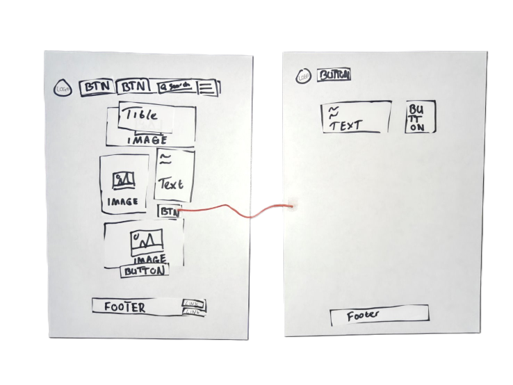 LOGO
BTN
BTN
Search
Title
IMAGE
IMAGE
Text
BTN
IMAGE
BUTTON
FOOTER
BUTTON
TEXT
BU
TT
ON
Footer